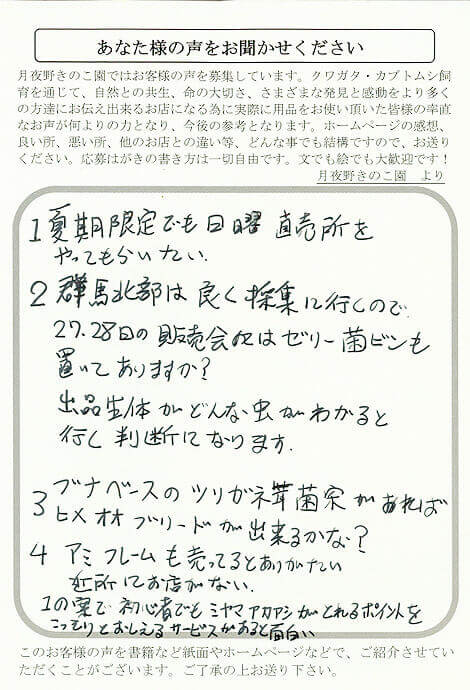 あなた様の声をお聞かせください
月夜野きのこ園ではお客様の声を募集しています。クワガタ・カブトムシ飼
育を通じて、自然との共生、命の大切さ、さまざまな発見と感動をより多く
の方達にお伝え出来るお店になる為に実際に用品をお使い頂いた皆様の率直
なお声が何よりの力となり、今後の参考となります。ホームページの感想、
良い所、悪い所、他のお店との違い等、どんな事でも結構ですので、お送り
ください。応募はがきの書き方は一切自由です。文でも絵でも大歓迎です！
月夜野きのこ園　より
1 夏期限定でも日曜 直売所を
やってもらいたい.
2 群馬北部は良く採集に行くので
27.28日の販売会にはゼリー菌ビンも
置いてありますか?
出品生体がどんな虫かわかると
行く判断になります.
3 ブナベースのツリガネ茸菌床があれば
ヒメオオブリードが出来るかな?
4 アミフレームも売ってるとありがたい
近所にお店がない.
1の案で初心者でもミヤマアカアシがとれるポイントを
こっそりとおしえるサービスがあると面白い
このお客様の声を書籍など紙面やホームページなどで、ご紹介させてい
ただくことがございます。ご了承の上お送り下さい。